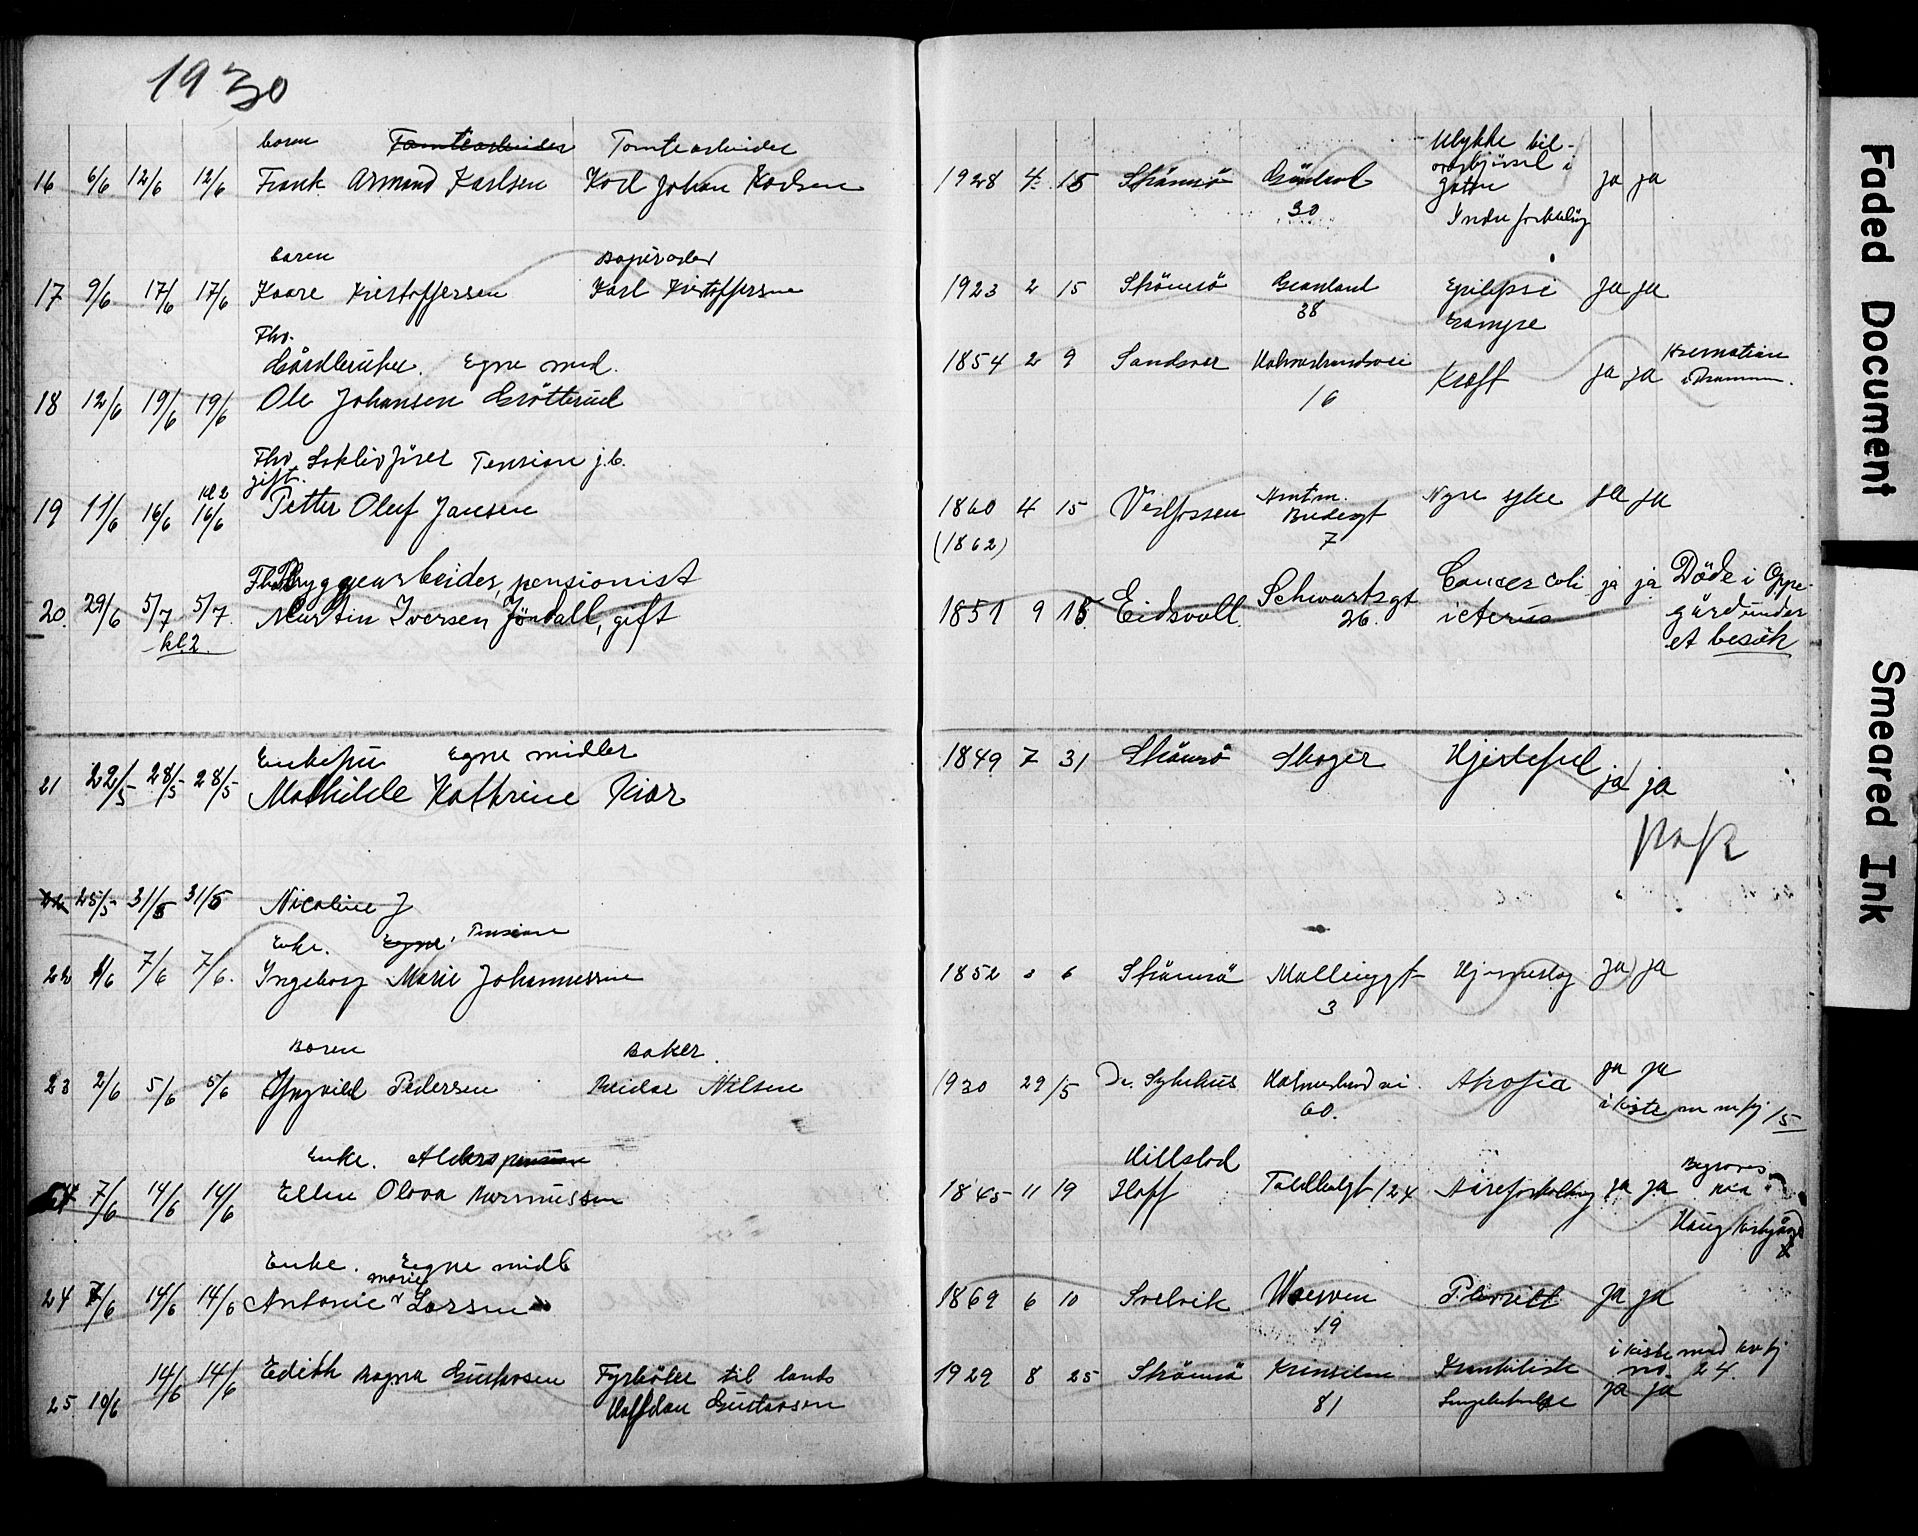 1930
baren Tomtearbeider Tomtearbeider
16 6/6 12/6 12/6 Frank Armand Karlsen Karl Johan Karlsen 1928 4 15 Strømsø 30 Ulykke bil- i gaten Indre ja ja
baren
17 9/6 17/6 17/6 Kaare Kristoffersen Karl Kristoffersen 1923 2 15 Strømsø Grønland 38 Epilepsi Krampe ja ja
Fhv. Gårdbruker. Egne mid.
18 12/6 19/6 19/6 Ole Johansen Grøtterud 1854 2 9 Sandsvær 16 Kræft ja ja Kremation i Drammen.
Fhv. Pension j.b.
gift. kl 2
19 11/6 16/6 16/6 Petter Oluf Jansen 1860 4 15 Vestfossen Amtm. Bredesgt 7 Nyre syke ja ja
(1862)
Fhv. Bryggearbeider, pensionist
20. 29/6 5/7 5/7. Martin Iversen Jøndall, gift 1851 9 15 Eidsvoll. Schwartsgt 26. Cancer coli icterus ja ja Døde i Oppegård under et besøk
kl. 2.
Enkefru Egne midler
21 22/5 28/5 28/5 Mathilde Kathrine Kiær 1849 7 31 Strømsø Skoger Hjertefeil ja ja
22 25/5 31/5 31/5 Nicoline J
Enke. Egne. Pension
22 1/6 7/6 7/6. Ingeborg Marie Johannessen 1852 6 Strømsø Mallinggt 3 Hjerneslag ja ja
Baren Baker.
23 2/6 5/6 5/6 Pedersen Reidar Nilsen 1930 29/5 Dr. Sykehus 60. ja ja i kiste m 15
Enke. Alderspension
24 7/6 14/6 14/6 Ellen Olava Rasmussen 1845 11 19 Hillestad Hoff Toldbodgt 24 Åreforkalkning ja ja Begraves paa Haug kirkegård
Enke. Egne midl
24 7/6 14/6 14/6 Antonie Marie Larsen 1869 6 10 Svelvik 19 Plevritt ja ja
25 10/6 14/6 14/6 Edith Ragna Gustavsen Fyrbøter til lands Halfdan Gustavsen 1929 8 25 Strømsø 81 i kiste med no. 24. ja ja
Faded Document
Smeared Ink